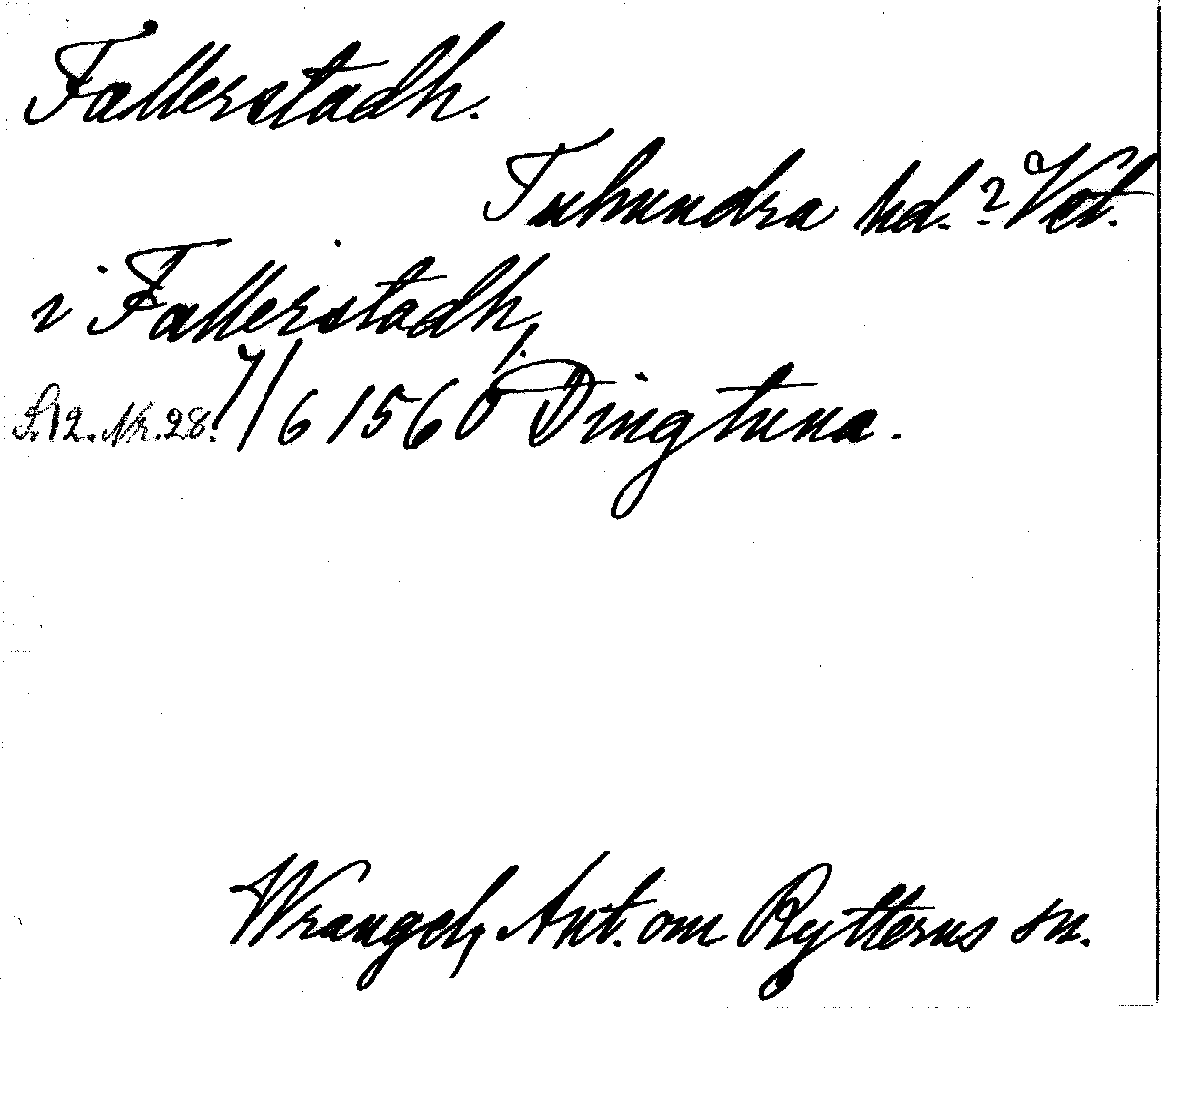 Fallerstadh.
Tuhundra hd.? Vstl.
i Fallerstadh,
S. 12. Nr. 28. 7/6 1560 Dingtuna.
Wrangel, Ant. om Rytterns sn.